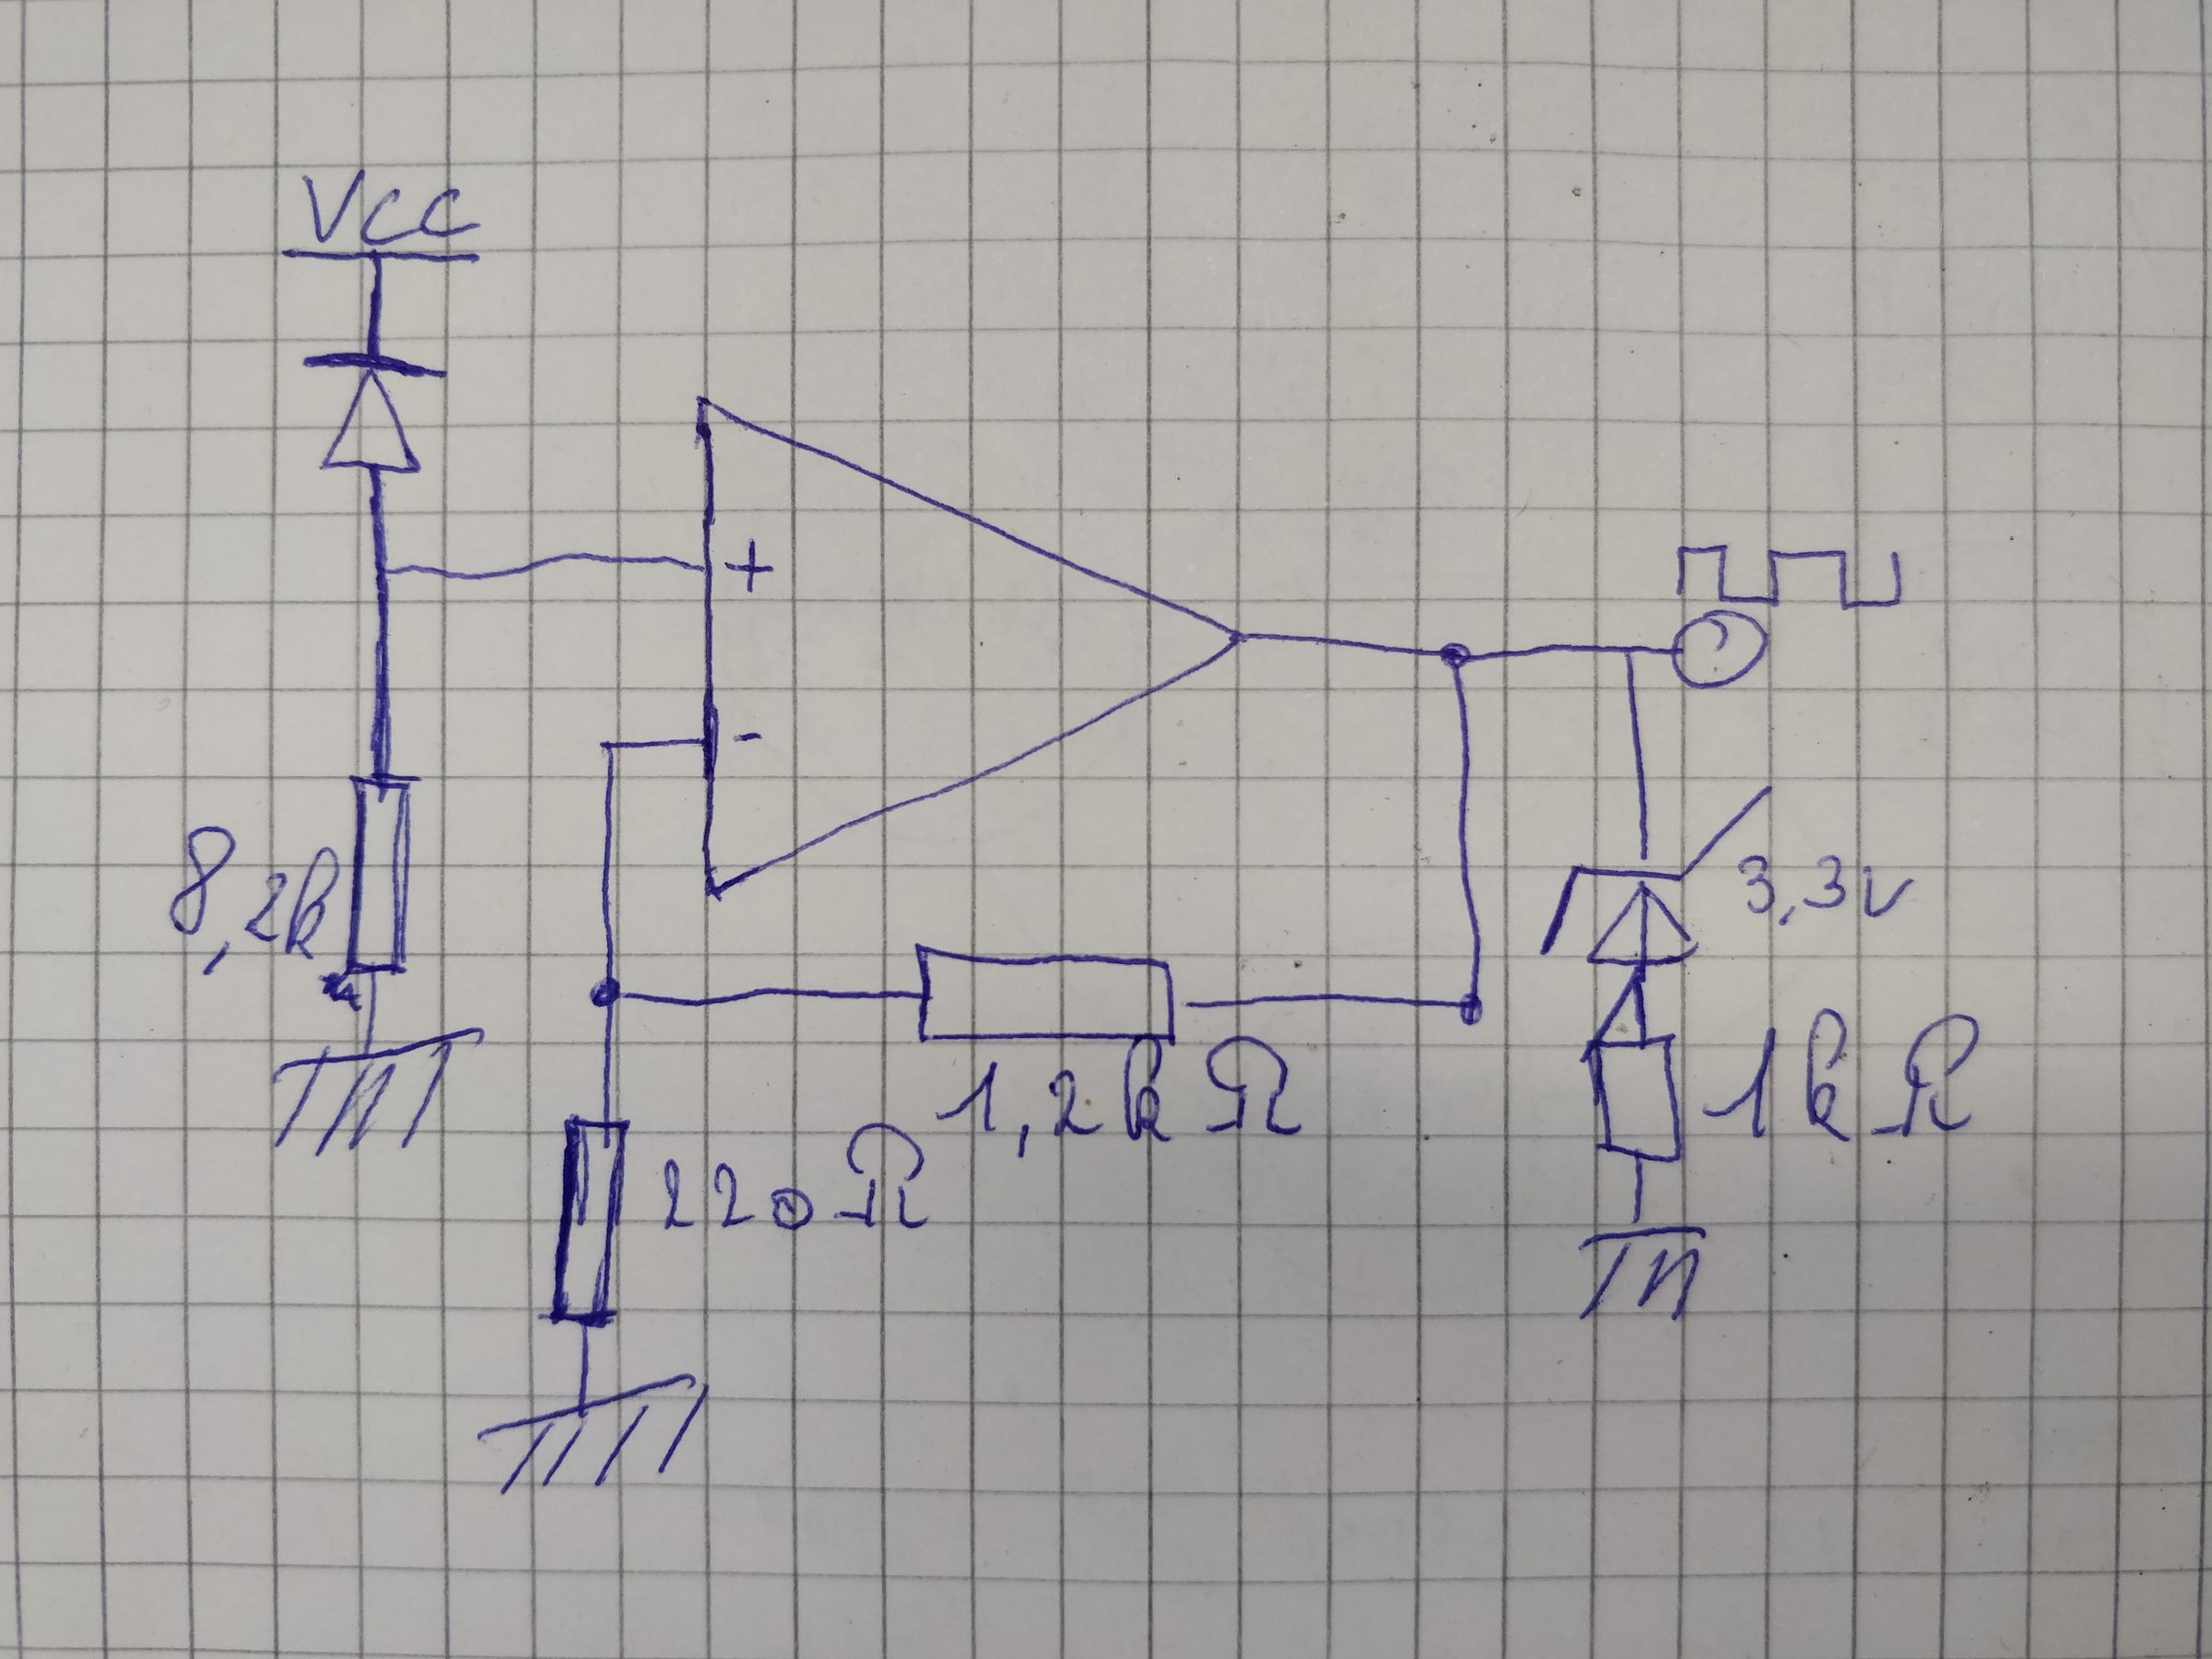 VCC
+
-
8,2k
3,3V
1,2kΩ
1kΩ
220Ω